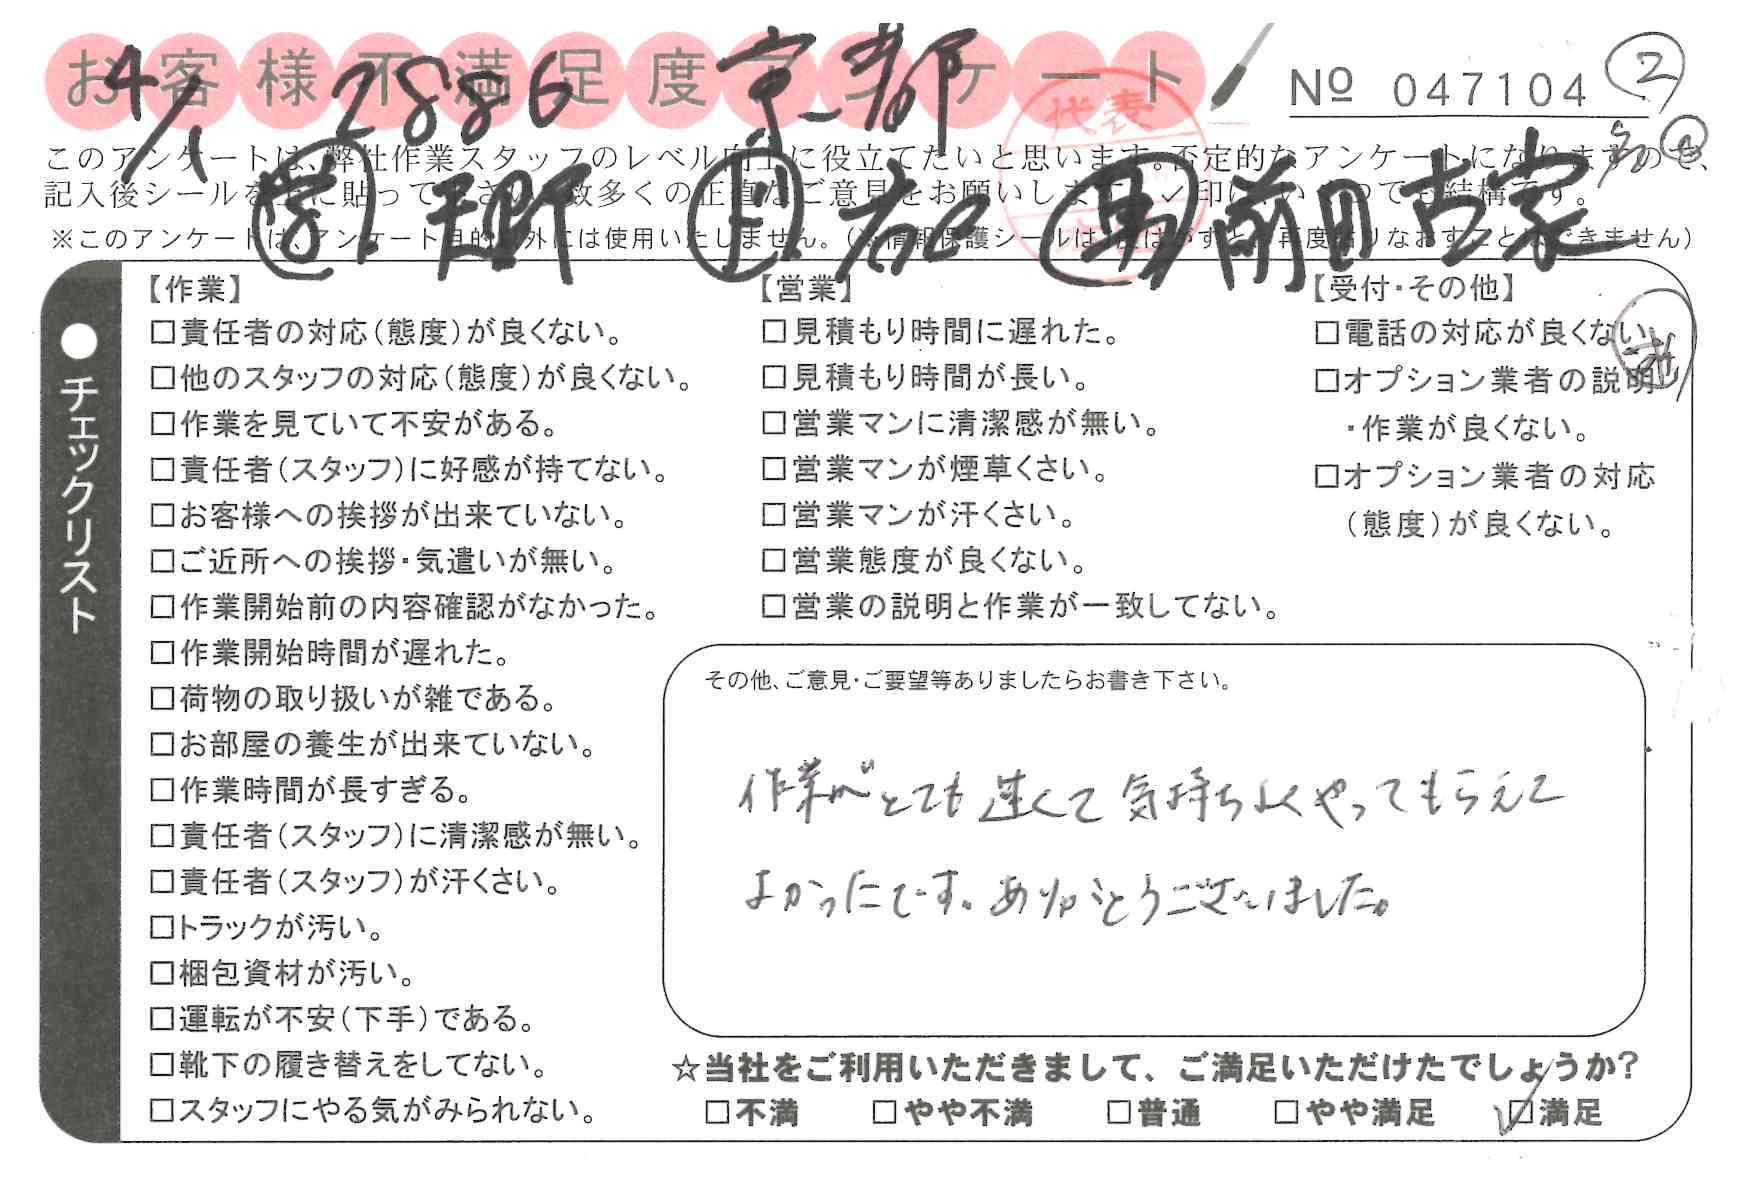 お客様不満足度アンケート
№ 047104 ②
4/1 2886 京都
このアンケートは、弊社作業スタッフのレベル向上に役立てたいと思います。否定的なアンケートになりますので、
記入後シールを上に貼って下さい。数多くの正直なご意見をお願いします。✓印は、いくつでも結構です。
※このアンケートは、アンケート目的以外には使用いたしません。(※情報保護シールは1度はがすと、再度貼りなおすことはできません)
代表
天野 岩口 前田 古家
●チェックリスト
【作業】
□責任者の対応(態度)が良くない。
□他のスタッフの対応(態度)が良くない。
□作業を見ていて不安がある。
□責任者(スタッフ)に好感が持てない。
□お客様への挨拶が出来ていない。
□ご近所への挨拶・気遣いが無い。
□作業開始前の内容確認がなかった。
□作業開始時間が遅れた。
□荷物の取り扱いが雑である。
□お部屋の養生が出来ていない。
□作業時間が長すぎる。
□責任者(スタッフ)に清潔感が無い。
□責任者(スタッフ)が汗くさい。
□トラックが汚い。
□梱包資材が汚い。
□運転が不安(下手)である。
□靴下の履き替えをしてない。
□スタッフにやる気がみられない。
【営業】
□見積もり時間に遅れた。
□見積もり時間が長い。
□営業マンに清潔感が無い。
□営業マンが煙草くさい。
□営業マンが汗くさい。
□営業態度が良くない。
□営業の説明と作業が一致してない。
【受付・その他】
□電話の対応が良くない。
□オプション業者の説明
・作業が良くない。
□オプション業者の対応
(態度)が良くない。
その他、ご意見・ご要望等ありましたらお書き下さい。
作業がとても速くて気持ちよくやってもらえて
よかったです。ありがとうございました。
☆当社をご利用いただきまして、ご満足いただけたでしょうか?
□不満 □やや不満 □普通 □やや満足 ☑満足